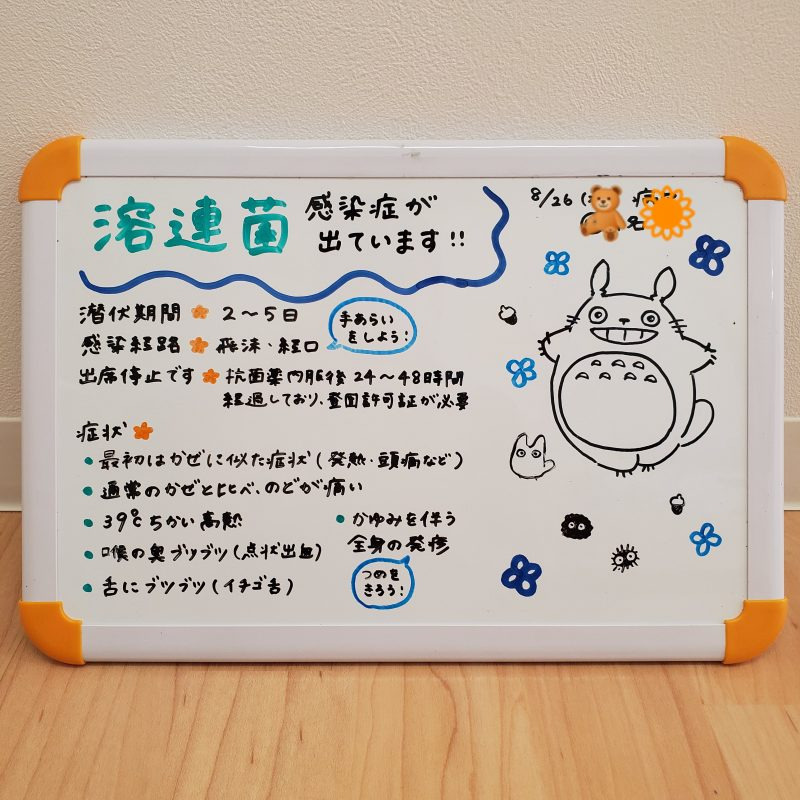 溶連菌 感染症が
出ています!!
8/26
名
潜伏期間 2〜5日
感染経路 飛沫・経口
手あらい
をしよう!
出席停止です 抗菌薬内服後24〜48時間
経過しており、登園許可証が必要
症状
・最初はかぜに似た症状(発熱・頭痛など)
・通常のかぜと比べ、のどが痛い
・39℃ちかい高熱
・喉の奥ブツブツ(点状出血)
・舌にブツブツ(イチゴ舌)
・かゆみを伴う
全身の発疹
つめを
きろう!